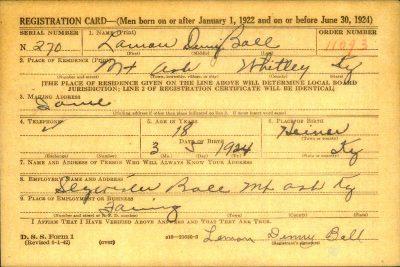 REGISTRATION CARD—(Men born on or after January 1, 1922 and on or before June 30, 1924)
SERIAL NUMBER 1. NAME (Print) ORDER NUMBER
N 270 Laman Denny Ball 11093
(First) (Middle) (Last)
2. PLACE OF RESIDENCE (Print)
Mt Ash Whitley Ky
(Number and street) (Town, township, village, or city) (County) (State)
[THE PLACE OF RESIDENCE GIVEN ON THE LINE ABOVE WILL DETERMINE LOCAL BOARD
JURISDICTION; LINE 2 OF REGISTRATION CERTIFICATE WILL BE IDENTICAL]
3. MAILING ADDRESS
Same
(Mailing address if other than place indicated on line 2. If same, insert word same)
4. TELEPHONE 5. AGE IN YEARS 6. PLACE OF BIRTH
18
DATE OF BIRTH (Town or county)
3 5 1924 Ky
(Exchange) (Number) (Mo.) (Day) (Yr.) (State or country)
7. NAME AND ADDRESS OF PERSON WHO WILL ALWAYS KNOW YOUR ADDRESS
8. EMPLOYER'S NAME AND ADDRESS
Ball Mt Ash Ky
9. PLACE OF EMPLOYMENT OR BUSINESS
(Number and street or R. F. D. number) (Town) (County) (State)
I AFFIRM THAT I HAVE VERIFIED ABOVE ANSWERS AND THAT THEY ARE TRUE.
D. S. S. Form 1
(Revised 6-1-42) (over) Lemon Denny Ball
(Registrant's signature)